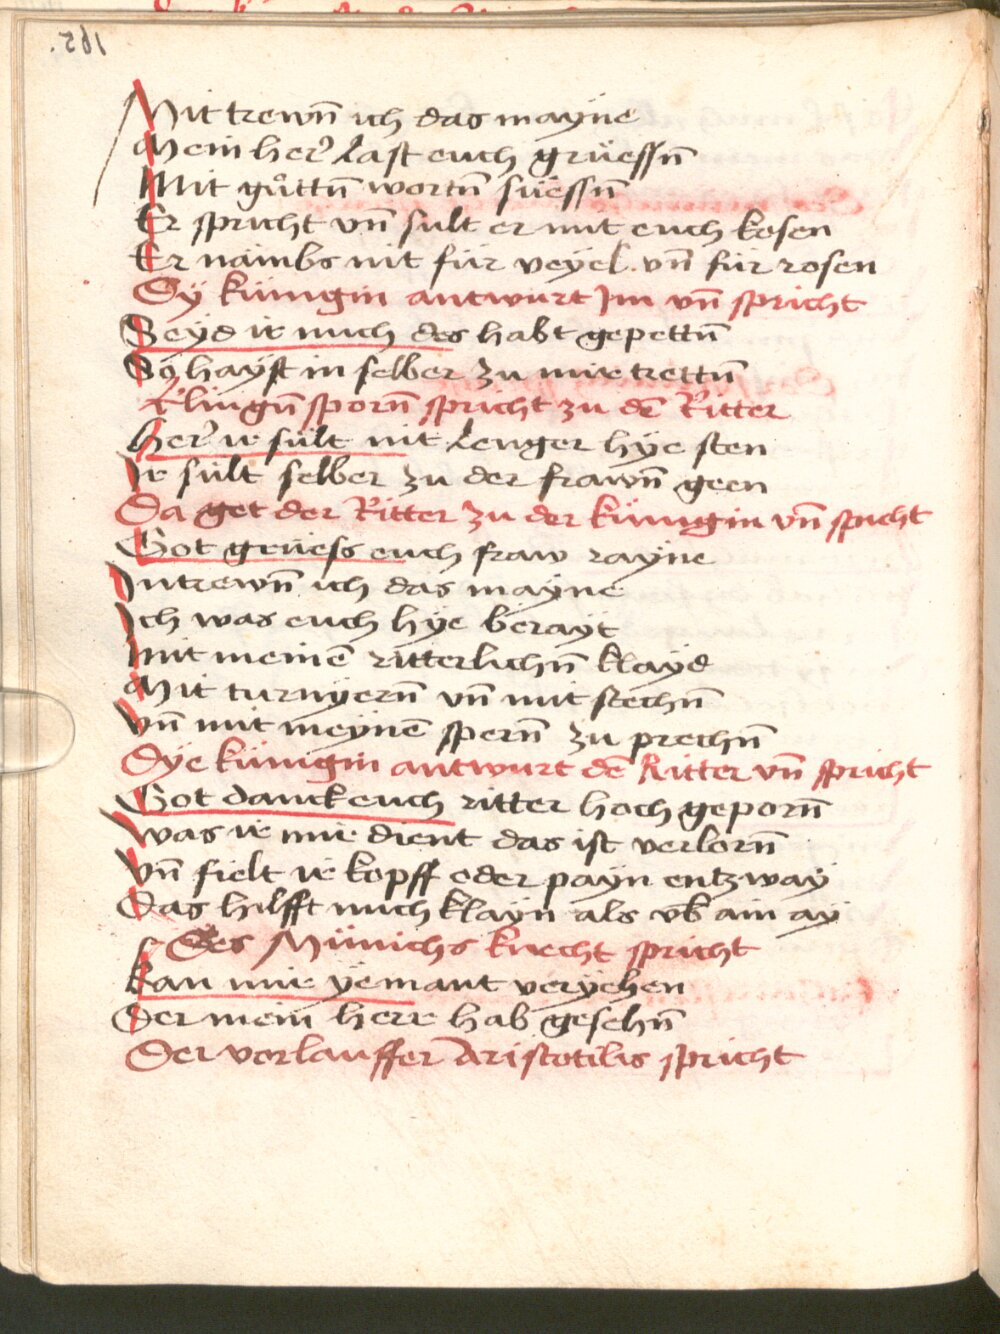 165.
Mit trewn̄ ich das mayne
Mein her̛ last euch grüessn̄
Mit gůttn̄ wortn̄ süessn̄
Er spricht vn̄ sult er mit euch kosen
Er nämbs nit für veyel. vn̄ für rosen
Dÿ künigin antwurt Im vn̄ spricht
Seyd ir mich des habt gepettn̄
So hayst in selber zu mir trettn̄
Klingn̄ sporn̄ spricht zu dē Ritter
Her̛ ir sült nit lenger hÿe sten
Ir sült selber zu der frawn̄ geen
Da get der Ritter zu der künigin vn̄ spicht
Got grüess euch fraw rayne
In trewn̄ ich das mayne
Ich was euch hÿe berayt
Mit meinē ritterlichn̄ klayd
Mit turnÿern̄ vn̄ mit stechn̄
Vn̄ mit meynē spern̄ zu prechn̄
Dÿe künigin antwurt dē Ritter vn̄ spricht
Got danck euch ritter hoch geporn̄
Was ir mir dient das ist verlorn̄
Vn̄ fielt ir kopff oder payn entzway
Das hilfft mich klayn als vb̄ ain ay
Des Münichs knecht spricht
Kan mir yemant veryehen
Der mein herr hab gesehn̄
Der vorlauffer Aristotilis spricht